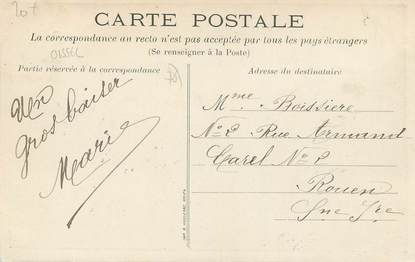 20f
OISSEL
CARTE POSTALE
La correspondance au recto n'est pas acceptée par tous les pays étrangers
(Se renseigner à la Poste)
Partie réservée à la correspondance
Adresse du destinataire
Un
gros baiser
Marie
Mme Boissiere
No 2 Rue Armand
Carel No 2
Rouen
Sne Ire